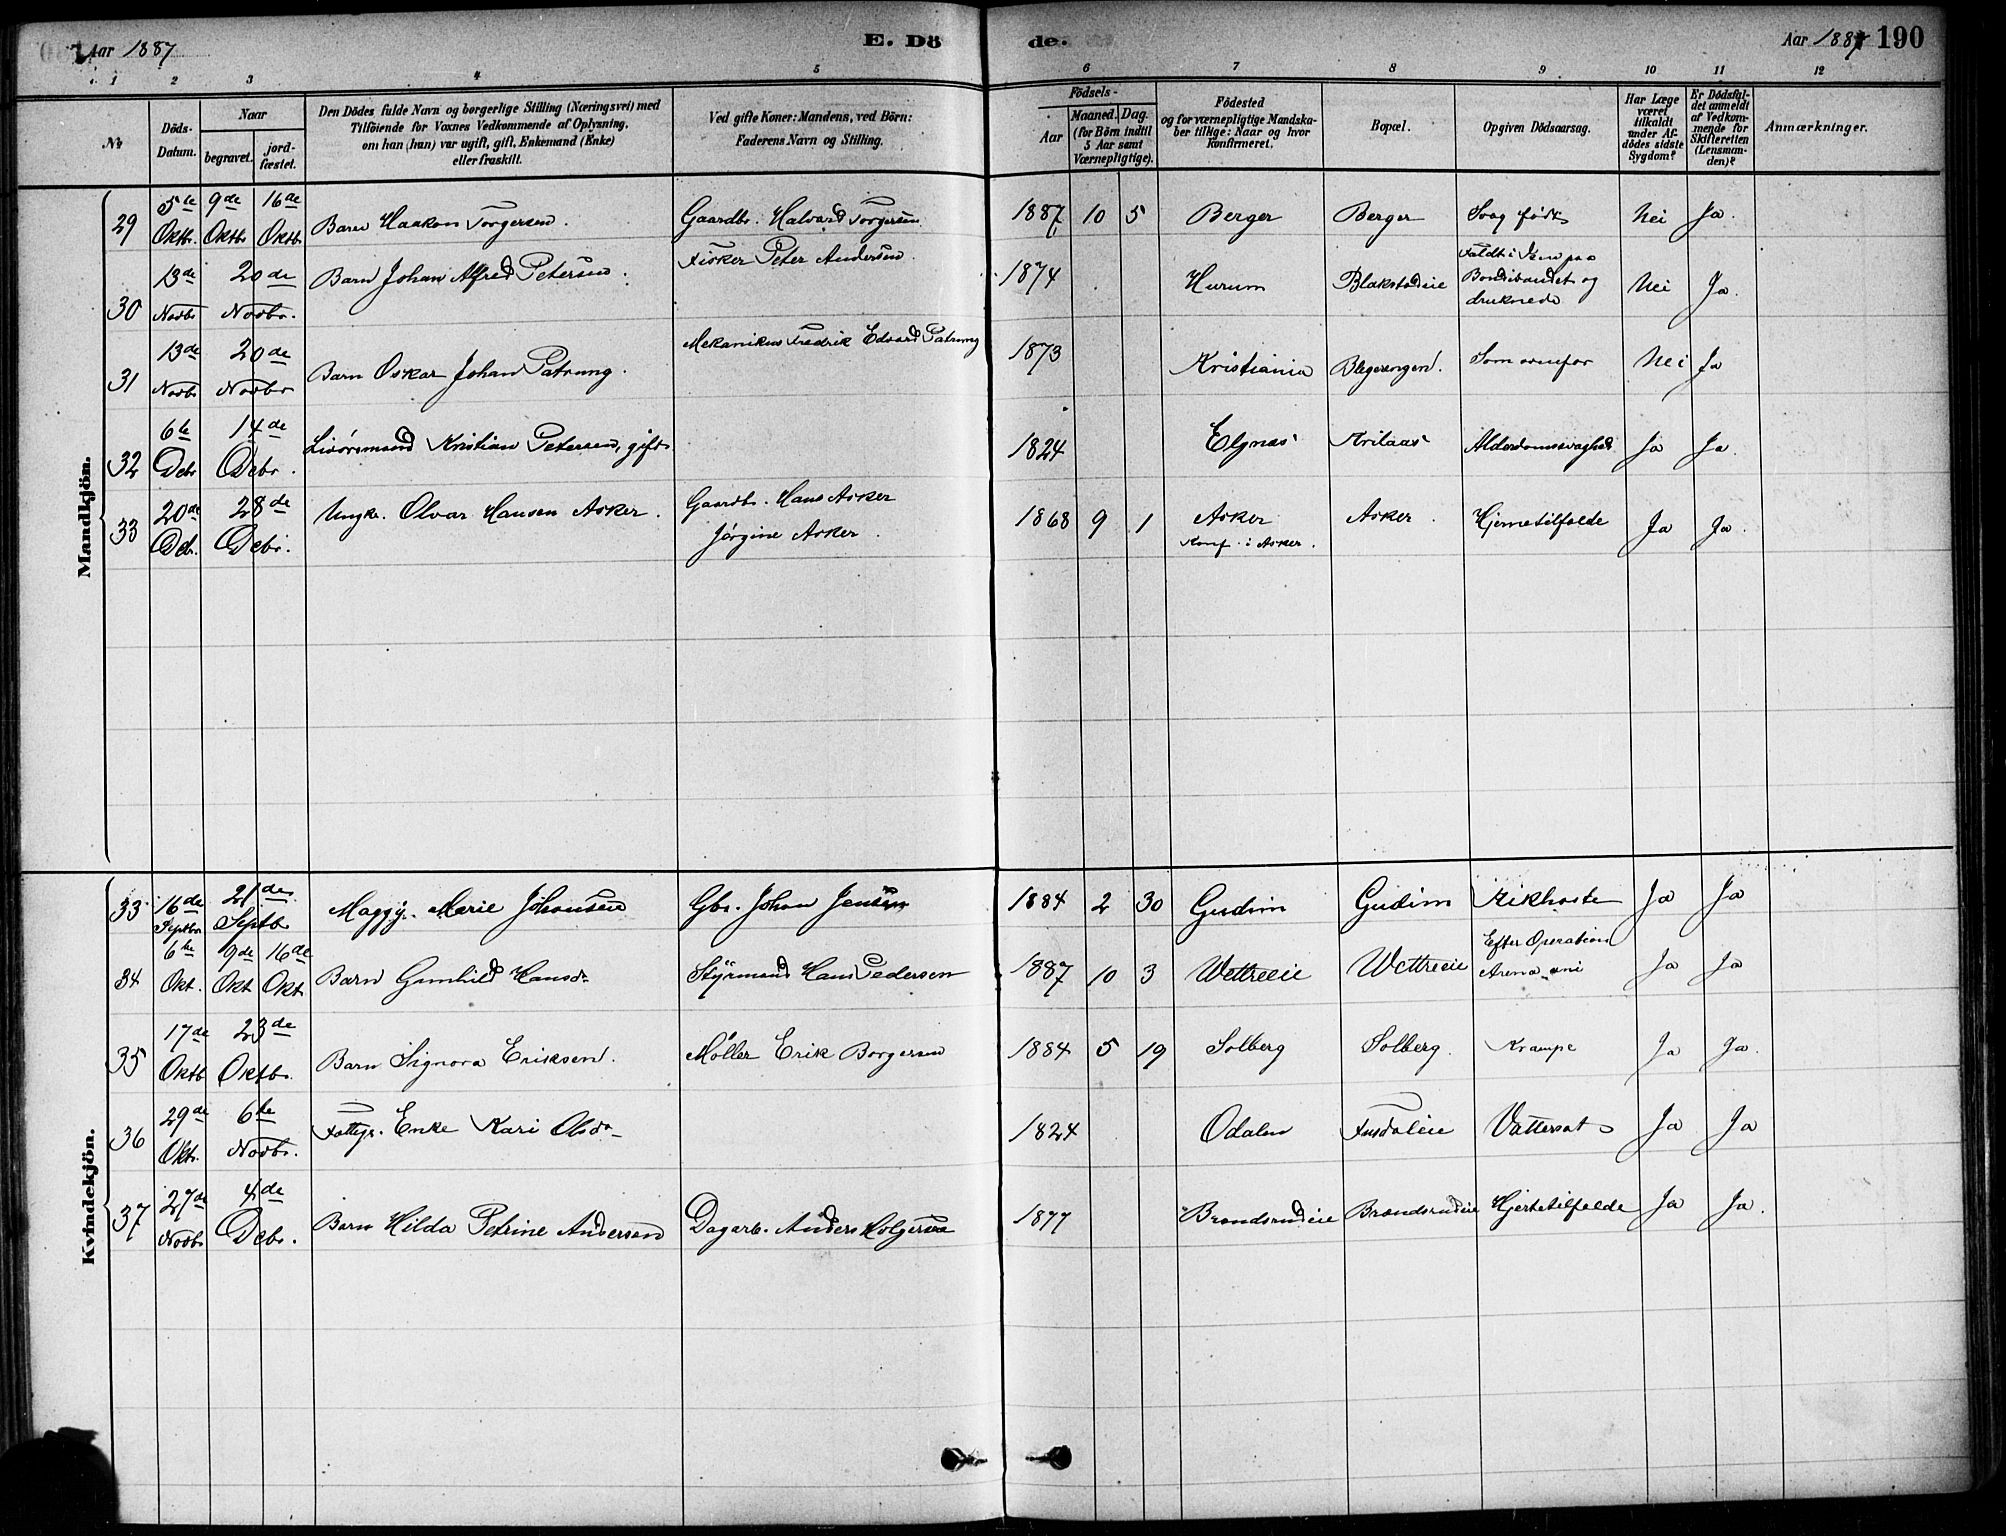 Aar 1887
E. Dö
de.
Aar 1887 190
1 2 3 4 5 6 7 8 9 10 11 12
No
Döds-
Datum.
Naar
begravet.
jord-
fæstet.
Den Dödes fulde Navn og borgerlige Stilling (Næringsvei) med
Tilföiende for Voxnes Vedkommende af Oplysning,
om han (hun) var ugift, gift, Enkemand (Enke)
eller fraskilt.
Ved gifte Koner: Mandens, ved Börn:
Faderens Navn og Stilling.
Födsels-
Aar
Maaned. Dag.
(for Börn indtil
5 Aar samt
Værnepligtige).
Födested
og for værnepligtige Mandska-
ber tillige: Naar og hvor
Konfirmeret.
Bopæl.
Opgiven Dödsaarsag.
Har Læge
været
tilkaldt
under Af-
dödes sidste
Sygdom?
Er Dödsfal-
det anmeldt
af Vedkom-
mende for
Skifteretten
(Lensman-
den)?
Anmærkninger.
Mandkjön.
29 5te Oktbr. 9de Oktbr 16de Oktbr Barn Haakon Torgersen. Gaardbr. Halvard Torgersen 1887 10 5 Berger Berger Svag født Nei Ja.
30 13de Novbr 20de Novbr. Barn Johan Alfred Petersen. Fisker Peter Andersen. 1874 Hurum Blakstadeie Faldt i Isen paa
Bondivandet og
druknede Nei Ja.
31 13de Novbr 20de Novbr Barn Oskar Johan Patrung. Mekanikus Fredrik Edvard Patrung 1873 Kristiania Blegerengen. Som ovenfor Nei Ja
32 6te Debr 14de Debr. Kristian Petersen, gift 1824 Elgnæs Alderdomssvaghed Ja Ja.
33 20de Debr. 28de Debr. Ungk. Olvar Hansen Asker. Gaardbr. Hans Asker
Jørgine Asker. 1868 9 1 Asker
Konf. i Asker. Asker. Hjernetilfælde Ja Ja.
Kvindekjön.
33 16de Septbr 21de Septbr Maggy. Marie Johansen Gbr. Johan Jensen 1884 2 30 Gudim Gudim Kikhoste Ja Ja
34 6te Okt. 9de Okt 16de Okt Barn Gunhild Hansdr Styrmand Hans Pedersen 1887 10 3 Wettreeie Wettreeie Efter Operation
Ja Ja
35 17de Oktb 23de Oktbr. Barn Signora Eriksen. Møller Erik Borgersen 1884 5 19 Solberg Solberg. Krampe Ja Ja.
36 29de Oktbr. 6te Novbr. Fattgr. Enke Kari Olsdr 1824 Odalen Fusdaleie Vattersot Ja Ja
37 27de Novbr 4de Debr. Barn Hilda Petrine Andersen Dagarb. Anders Holgersen 1877 Brøndsrudeie Brøndsrudeie Hjertetilfælde Ja Ja.